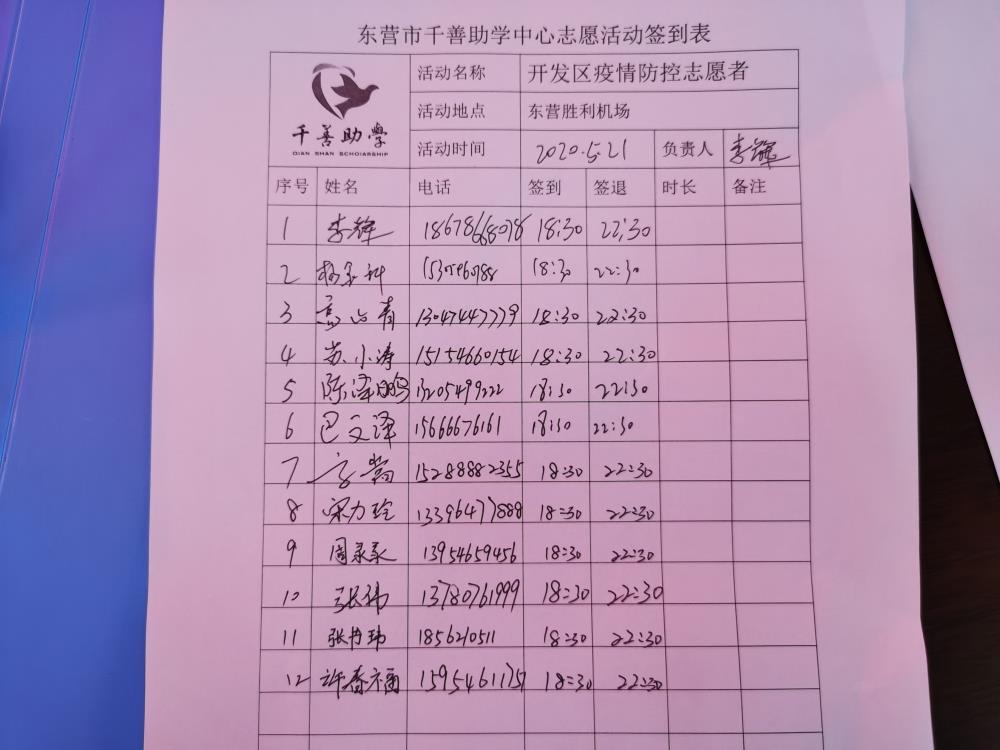 东营市千善助学中心志愿活动签到表
千善助学
QIAN SHAN SCHOLARSHIP
活动名称 开发区疫情防控志愿者
活动地点 东营胜利机场
活动时间 2020.5.21 负责人 李辉
序号 姓名 电话 签到 签退 时长 备注
1 李辉 18678668078 18:30 22:30
2 18:30 22:30
3 13047447779 18:30 22:30
4 苏小涛 15154660154 18:30 22:30
5 陈泽鹏 13205499222 18:30 22:30
6 巴文泽 15666676161 18:30 22:30
7 15288882355 18:30 22:30
8 宋力玲 13396477888 18:30 22:30
9 13954659456 18:30 22:30
10 张伟 13780761999 18:30 22:30
11 1856210511 18:30 22:30
12 许春福 18:30 22:30